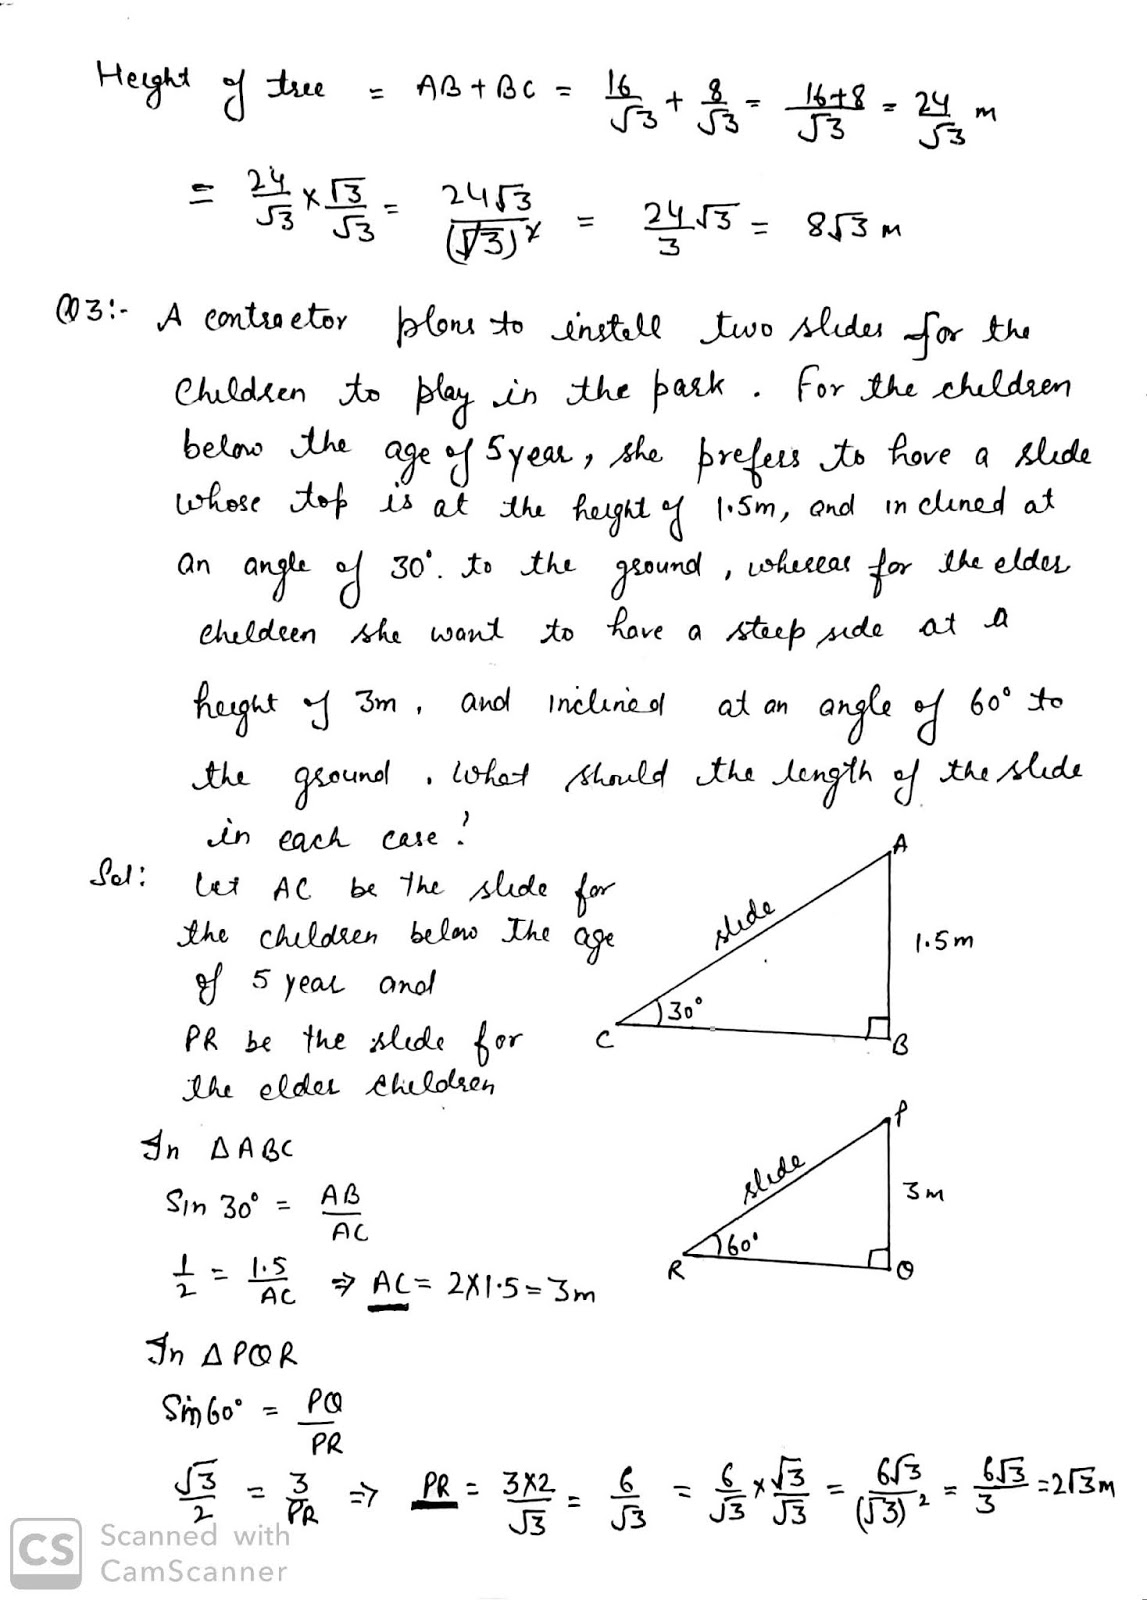 Height of tree = AB + BC = 16/√3 + 8/√3 = 16+8/√3 = 24/√3 m
= 24/√3 × √3/√3 = 24√3/(√3)² = 24√3/3 = 8√3 m
Q3:- A contractor plans to install two slides for the
Children to play in the park. For the children
below the age of 5 year, she prefers to have a slide
whose top is at the height of 1.5m, and inclined at
an angle of 30°. to the ground, whereas for the elder
children she want to have a steep side at a
height of 3m, and inclined at an angle of 60° to
the ground. What should the length of the slide
in each case?
Sol: Let AC be the slide for
the children below the age
of 5 year and
PR be the slide for
the elder children
A
slide
1.5m
30°
C
B
P
slide
3m
60°
R
Q
In △ABC
Sin 30° = AB/AC
1/2 = 1.5/AC ⇒ AC = 2×1.5 = 3m
In △PQR
Sin60° = PQ/PR
√3/2 = 3/PR ⇒ PR = 3×2/√3 = 6/√3 = 6/√3 × √3/√3 = 6√3/(√3)² = 6√3/3 = 2√3m
CS Scanned with
CamScanner